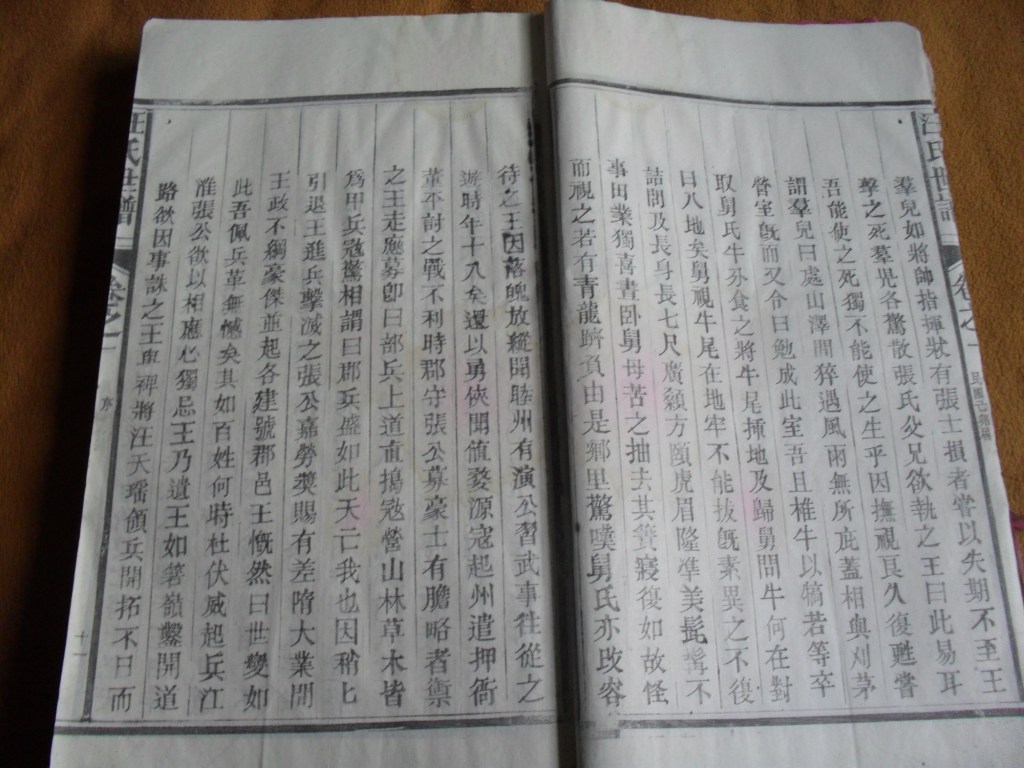 汪氏世譜
卷之一
羣兒如將帥指揮狀有張士損者嘗以失期不至王
擊之死羣兒各驚散張氏父兄欲執之王曰此易耳
吾能使之死獨不能使之生乎因撫視良久復甦嘗
謂羣兒曰處山澤間猝遇風雨無所庇蓋相與刈茅
營室既而又令曰勉成此室吾且椎牛以犒若等卒
取舅氏牛外食之將牛尾揷地及歸舅問牛何在對
曰入地矣舅視牛尾在地牢不能拔既素異之不復
詰問及長身長七尺廣顙方頤虎眉隆準美髭髯不
事田業獨喜晝卧舅母苦之抽去其簀寢復如故怪
而視之若有青龍躋負由是鄉里驚嘆舅氏亦改容
待之王因落魄放縱開睦州有演公習武事往從之
遊時年十八矣還以勇俠聞値婺源寇起州遣押衙
董平討之戰不利時郡守張公募豪士有膽略者禦
之王走應募卽日部兵上道直搗寇營山林草木皆
爲甲兵寇驚相謂曰郡兵盛如此天亡我也因稍匕
引退王進兵擊滅之張公嘉勞奬賜有差隋大業間
王政不綱豪傑並起各建號郡邑王慨然曰世變如
此吾佩兵革無憾矣其如百姓何時杜伏威起兵江
淮張公欲以相應心獨忌王乃遣王如箬嶺鑿開道
路欲因事誅之王與裨將汪天瑤領兵開拓不日而
汪氏世譜
卷之一
序
十一